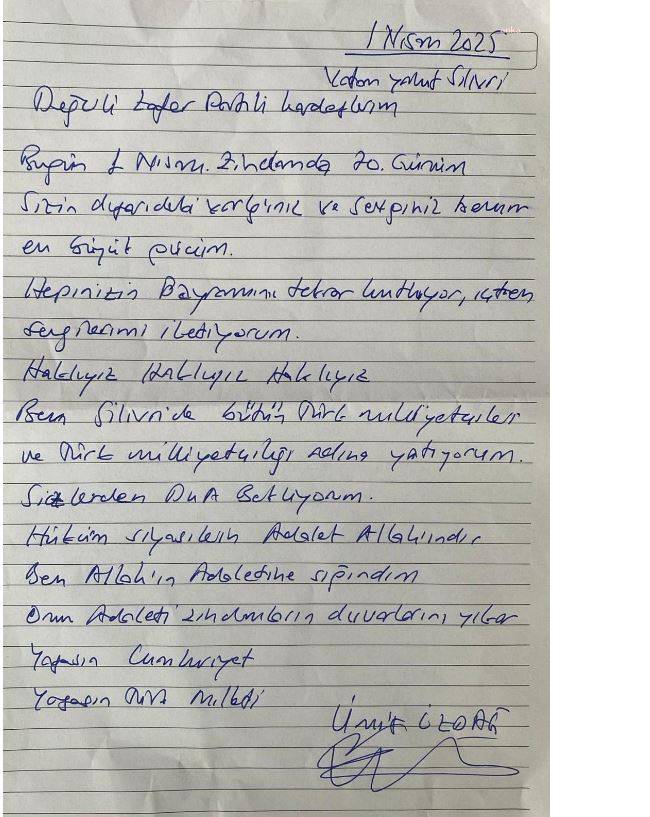 1 Nisan 2025
Vatan yahut Silivri
Değerli Zafer Partili kardeşlerim
Bugün 1 Nisan. Zindanda 70. Günüm
Sizin dışarıdaki varlığınız ve sevginiz benim
en büyük gücüm.
Hepinizin Bayramını tekrar kutluyor, içten
sevgilerimi iletiyorum.
Haklıyız Haklıyız Haklıyız
Ben Silivri'de bütün Türk milliyetçileri
ve Türk milliyetçiliği adına yatıyorum.
Sizlerden Dua Bekliyorum.
Hüküm siyasilerin Adalet Allah'ındır
Ben Allah'ın Adaletine sığındım
Onun Adaleti zindanların duvarlarını yıkar
Yaşasın Cumhuriyet
Yaşasın Türk Milleti
Ümit ÖZDAĞ